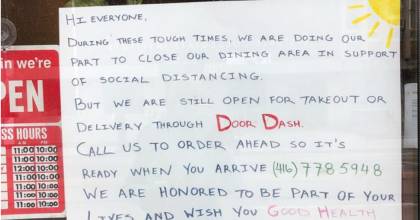 HI EVERYONE,
DURING THESE TOUGH TIMES, WE ARE DOING OUR
PART TO CLOSE OUR DINING AREA IN SUPPORT
OF SOCIAL DISTANCING.
BUT WE ARE STILL OPEN FOR TAKEOUT OR
DELIVERY THROUGH DOOR DASH.
CALL US TO ORDER AHEAD SO IT'S
READY WHEN YOU ARRIVE (416) 778 5948
WE ARE HONORED TO BE PART OF YOUR
LIVES AND WISH YOU GOOD HEALTH
in we're
PEN
SS HOURS
AM PM
11:00 10:00
11:00 10:00
12:00 10:00
11:00 10:00
11:00 10:00
11:00 10:00